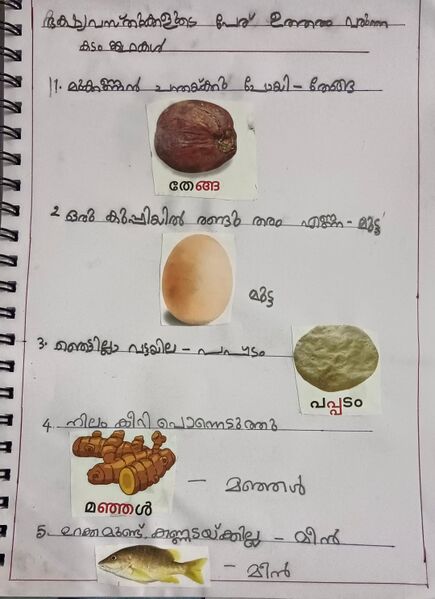 ഭക്ഷ്യവസ്തുക്കളുടെ പേര് ഉത്തരം വരുന്ന
കടം കഥകൾ
1. മുക്കണ്ണൻ ചന്തയ്ക്കു പോയി – തേങ്ങ
തേങ്ങ
2. ഒരു കുപ്പിയിൽ രണ്ടു തരം എണ്ണ – മുട്ട
മുട്ട
3. ഞെട്ടില്ലാ വട്ടയില – പപ്പടം
പപ്പടം
4. നിലം കീറി പൊന്നെടുത്തു
മഞ്ഞൾ – മഞ്ഞൾ
5. ഉറക്കമുണ്ട് കണ്ണടയ്ക്കില്ല – മീൻ
– മീൻ